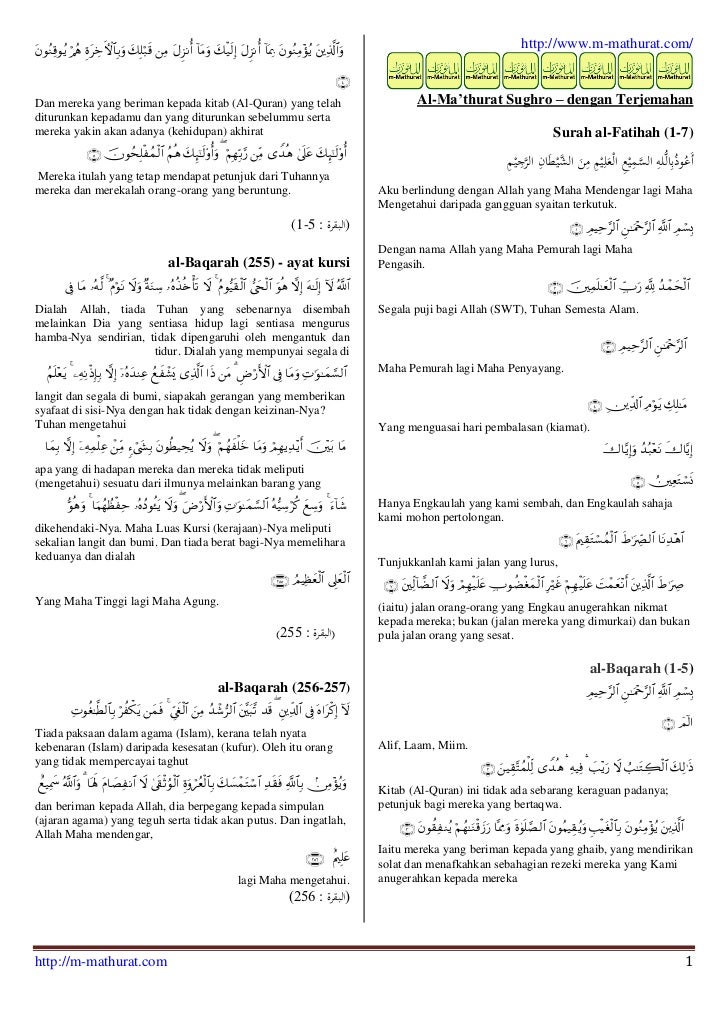 http://www.m-mathurat.com/
m-Mathurat m-Mathurat m-Mathurat m-Mathurat m-Mathurat m-Mathurat m-Mathurat m-Mathurat
Al-Ma’thurat Sughro – dengan Terjemahan
Surah al-Fatihah (1-7)
أَعُوذُ بِاللَّهِ السَّمِيْعِ الْعَلِيْمِ مِنَ الشَّيْطَانِ الرَّجِيْمِ
Aku berlindung dengan Allah yang Maha Mendengar lagi Maha
Mengetahui daripada gangguan syaitan terkutuk.
بِسْمِ ٱللَّهِ ٱلرَّحْمَـٰنِ ٱلرَّحِيمِ ﴿١﴾
Dengan nama Allah yang Maha Pemurah lagi Maha
Pengasih.
ٱلْحَمْدُ لِلَّهِ رَبِّ ٱلْعَـٰلَمِينَ ﴿٢﴾
Segala puji bagi Allah (SWT), Tuhan Semesta Alam.
ٱلرَّحْمَـٰنِ ٱلرَّحِيمِ ﴿٣﴾
Maha Pemurah lagi Maha Penyayang.
مَـٰلِكِ يَوْمِ ٱلدِّينِ ﴿٤﴾
Yang menguasai hari pembalasan (kiamat).
إِيَّاكَ نَعْبُدُ وَإِيَّاكَ
نَسْتَعِينُ ﴿٥﴾
Hanya Engkaulah yang kami sembah, dan Engkaulah sahaja
kami mohon pertolongan.
ٱهْدِنَا ٱلصِّرَٰطَ ٱلْمُسْتَقِيمَ ﴿٦﴾
Tunjukkanlah kami jalan yang lurus,
صِرَٰطَ ٱلَّذِينَ أَنْعَمْتَ عَلَيْهِمْ غَيْرِ ٱلْمَغْضُوبِ عَلَيْهِمْ وَلَا ٱلضَّآلِّينَ ﴿٧﴾
(iaitu) jalan orang-orang yang Engkau anugerahkan nikmat
kepada mereka; bukan (jalan mereka yang dimurkai) dan bukan
pula jalan orang yang sesat.
al-Baqarah (1-5)
بِسْمِ ٱللَّهِ ٱلرَّحْمَـٰنِ ٱلرَّحِيمِ
الٓمٓ ﴿١﴾
Alif, Laam, Miim.
ذَٰلِكَ ٱلْكِتَـٰبُ لَا رَيْبَ ۛ فِيهِ ۛ هُدًى لِّلْمُتَّقِينَ ﴿٢﴾
Kitab (Al-Quran) ini tidak ada sebarang keraguan padanya;
petunjuk bagi mereka yang bertaqwa.
ٱلَّذِينَ يُؤْمِنُونَ بِٱلْغَيْبِ وَيُقِيمُونَ ٱلصَّلَوٰةَ وَمِمَّا رَزَقْنَـٰهُمْ يُنفِقُونَ ﴿٣﴾
Iaitu mereka yang beriman kepada yang ghaib, yang mendirikan
solat dan menafkahkan sebahagian rezeki mereka yang Kami
anugerahkan kepada mereka
وَٱلَّذِينَ يُؤْمِنُونَ بِمَآ أُنزِلَ إِلَيْكَ وَمَآ أُنزِلَ مِن قَبْلِكَ وَبِٱلْـَٔاخِرَةِ هُمْ يُوقِنُونَ
﴿٤﴾
Dan mereka yang beriman kepada kitab (Al-Quran) yang telah
diturunkan kepadamu dan yang diturunkan sebelummu serta
mereka yakin akan adanya (kehidupan) akhirat
أُو۟لَـٰٓئِكَ عَلَىٰ هُدًى مِّن رَّبِّهِمْ ۖ وَأُو۟لَـٰٓئِكَ هُمُ ٱلْمُفْلِحُونَ ﴿٥﴾
Mereka itulah yang tetap mendapat petunjuk dari Tuhannya
mereka dan merekalah orang-orang yang beruntung.
(البقرة : 5-1)
al-Baqarah (255) - ayat kursi
ٱللَّهُ لَآ إِلَـٰهَ إِلَّا هُوَ ٱلْحَىُّ ٱلْقَيُّومُ ۚ لَا تَأْخُذُهُۥ سِنَةٌ وَلَا نَوْمٌ ۚ لَّهُۥ مَا فِى
Dialah Allah, tiada Tuhan yang sebenarnya disembah
melainkan Dia yang sentiasa hidup lagi sentiasa mengurus
hamba-Nya sendirian, tidak dipengaruhi oleh mengantuk dan
tidur. Dialah yang mempunyai segala di
ٱلسَّمَـٰوَٰتِ وَمَا فِى ٱلْأَرْضِ ۗ مَن ذَا ٱلَّذِى يَشْفَعُ عِندَهُۥٓ إِلَّا بِإِذْنِهِۦ ۚ يَعْلَمُ
langit dan segala di bumi, siapakah gerangan yang memberikan
syafaat di sisi-Nya dengan hak tidak dengan keizinan-Nya?
Tuhan mengetahui
مَا بَيْنَ أَيْدِيهِمْ وَمَا خَلْفَهُمْ ۖ وَلَا يُحِيطُونَ بِشَىْءٍ مِّنْ عِلْمِهِۦٓ إِلَّا بِمَا
apa yang di hadapan mereka dan mereka tidak meliputi
(mengetahui) sesuatu dari ilmunya melainkan barang yang
شَآءَ ۚ وَسِعَ كُرْسِيُّهُ ٱلسَّمَـٰوَٰتِ وَٱلْأَرْضَ ۖ وَلَا يَـُٔودُهُۥ حِفْظُهُمَا ۚ وَهُوَ
dikehendaki-Nya. Maha Luas Kursi (kerajaan)-Nya meliputi
sekalian langit dan bumi. Dan tiada berat bagi-Nya memelihara
keduanya dan dialah
ٱلْعَلِىُّ ٱلْعَظِيمُ ﴿٢٥٥﴾
Yang Maha Tinggi lagi Maha Agung.
(البقرة : 255)
al-Baqarah (256-257)
لَآ إِكْرَاهَ فِى ٱلدِّينِ ۖ قَد تَّبَيَّنَ ٱلرُّشْدُ مِنَ ٱلْغَىِّ ۚ فَمَن يَكْفُرْ بِٱلطَّـٰغُوتِ
Tiada paksaan dalam agama (Islam), kerana telah nyata
kebenaran (Islam) daripada kesesatan (kufur). Oleh itu orang
yang tidak mempercayai taghut
وَيُؤْمِنۢ بِٱللَّهِ فَقَدِ ٱسْتَمْسَكَ بِٱلْعُرْوَةِ ٱلْوُثْقَىٰ لَا ٱنفِصَامَ لَهَا ۗ وَٱللَّهُ سَمِيعٌ
dan beriman kepada Allah, dia berpegang kepada simpulan
(ajaran agama) yang teguh serta tidak akan putus. Dan ingatlah,
Allah Maha mendengar,
عَلِيمٌ ﴿٢٥٦﴾
lagi Maha mengetahui.
(البقرة : 256)
http://m-mathurat.com 1